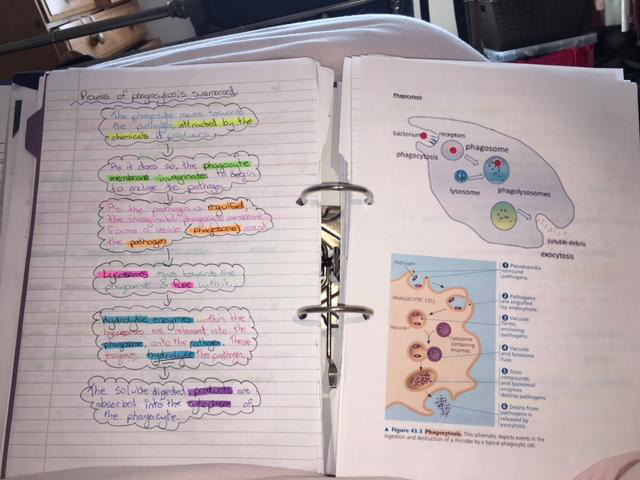 Process of phagocytosis summarised
The phagocyte moves towards
the pathogen attracted by the
chemicals it produces.
As it does so, the phagocyte
membrane invaginates to begin
to enclose the pathogen.
As the pathogen is engulfed
the invaginated phagocyte membrane
forms a vesicle (phagosome) around
the pathogen
Lysosomes move towards the
phagosome & fuse with it.
hydrolytic enzymes within the
lysosomes are released into the
phagosome, onto the pathogen. These
enzymes hydrolyse the pathogen.
The soluble digested products are
absorbed into the cytoplasm of
the phagocyte.
Phagocytosis
bacterium
receptors
phagocytosis
phagosome
lysosome
phagolysosomes
soluble debris
exocytosis
Pathogen
PHAGOCYTIC CELL
Vacuole
Lysosome
containing
enzymes
1 Pseudopodia
surround
pathogens.
2 Pathogens
are engulfed
by endocytosis.
3 Vacuole
forms,
enclosing
pathogens.
4 Vacuole
and lysosome
fuse.
5 Toxic
compounds
and lysosomal
enzymes
destroy pathogens.
6 Debris from
pathogens is
released by
exocytosis.
▲ Figure 43.3 Phagocytosis. This schematic depicts events in the
ingestion and destruction of a microbe by a typical phagocytic cell.